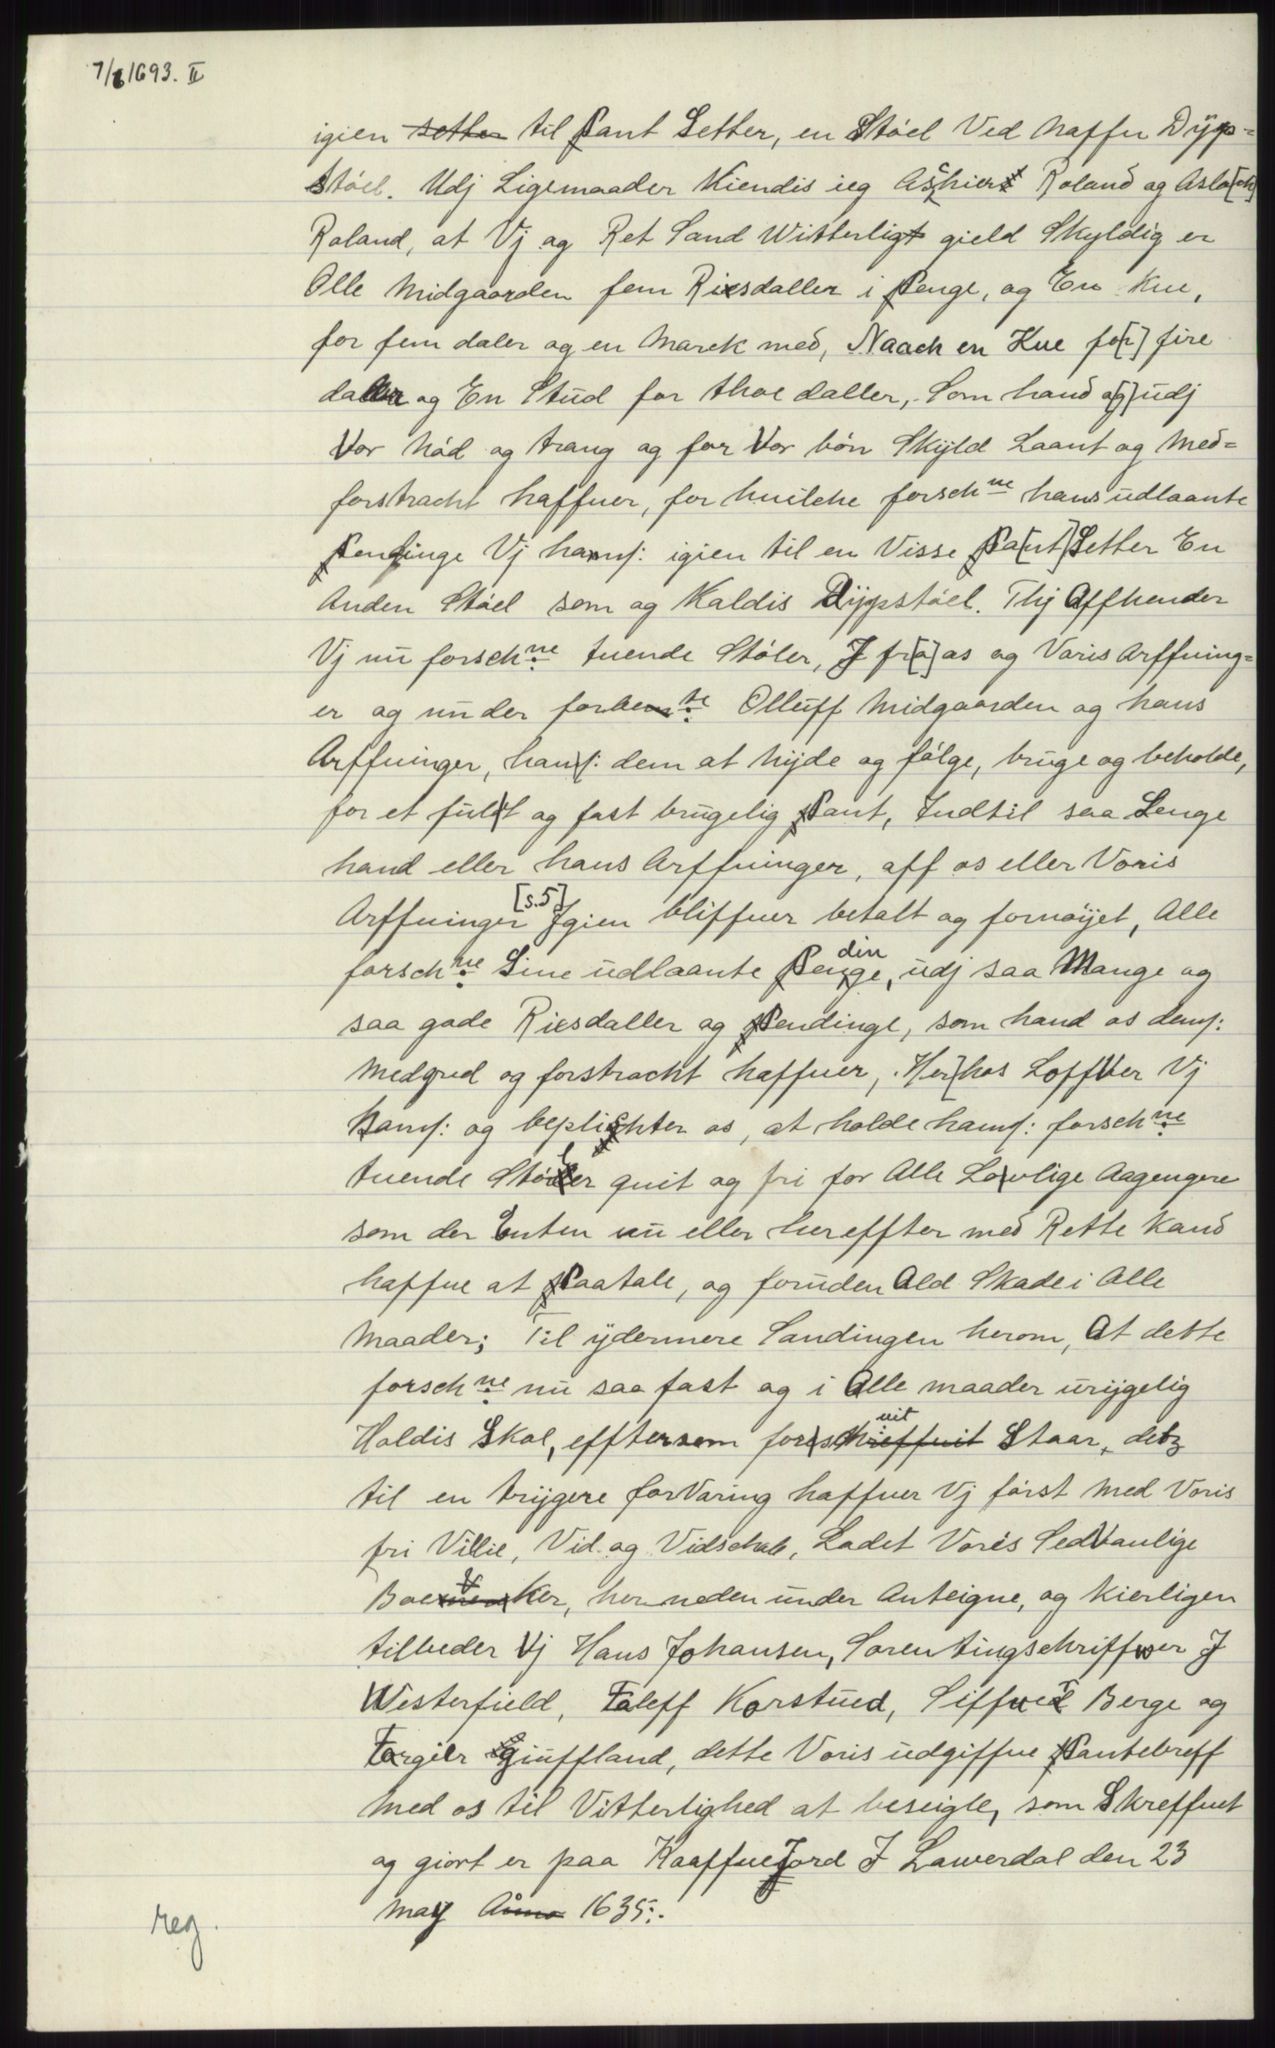 7/6 1693. II
igien setter til Pant Setter, en Støel Ved Naffn Dÿp=
støel. Udj Ligemaader Kiendis ieg Aschier Roland og Asla[ch]
Roland, at Vj og Ret Sand Witterligt gield Skyldig er
Olle Midgaarden fem Rixsdaller i Penge, og En Kue,
for fem daler og en Marck med, Naach en Kue fo[r] fire
daller og En Stüd for thoe daller, Som hand o[g] udj
Vor Nød og trang og for Vor bøn Skÿld Laant og Med=
forstracht haffuer, for huilche forschne hans udlaante
Pendinge Vj hamf: igien til en Visse Pa[nt] Setter En
Anden Støel som og Kaldis Dÿpstøel. Thj Affhender
Vj nu forschne tuende Støler, J fr[a] as og Varis Arffuing=
er og under forbente Olluff Midgaarden og hans
Arffuinger, hamf: dem at Nyde og følge, bruge og beholde,
for et fult og fast brugelig Pant, Indtil saa Lenge
hand eller hans Arffuinger, aff os eller Voris
Arffuinger [s.5] Igien bliffuer betalt og fornøÿet, Alle
forschne Sine udlaante Pendinge, udj saa Mange og
saa gode Rixsdaller og Pendinge, som hand os demf:
Medgued og forstracht haffuer, Her[hos Loffuer Vj
hamf: og beplichter os, at holde hamf: forschne
tuende Støeler quit og fri for Alle Lovlige Aagengere
som der Enten nu eller hereffter med Rette Kand
haffue at Paatale, og foruden Ald Skade i Alle
Maader; Til ÿdermere Sandingen herom, At dette
forschne nu saa fast og i Alle maader urÿgelig
Holdis Skal, efftersom forschreffuit uit Staar, detz
til en trÿgere forVaring haffuer Vj først Med Voris
fri Villie, Vid og Vidschab, Ladet Voris SedVanlige
Boemerker, herneden under Anteigne, og Kierligen
tilbeder Vj Hans Johansen, Soren tingschriffuer J
Westerfield, Taleff Korstued, Siffued Berge og
Targier Giuffland, dette Voris udgiffue Pantebreff
Med os til Vitterlighed at beseigle, som Skreffuet
og giort er paa Kaaffuejord J Lawerdal den 23
May Anno 1635:.
reg.